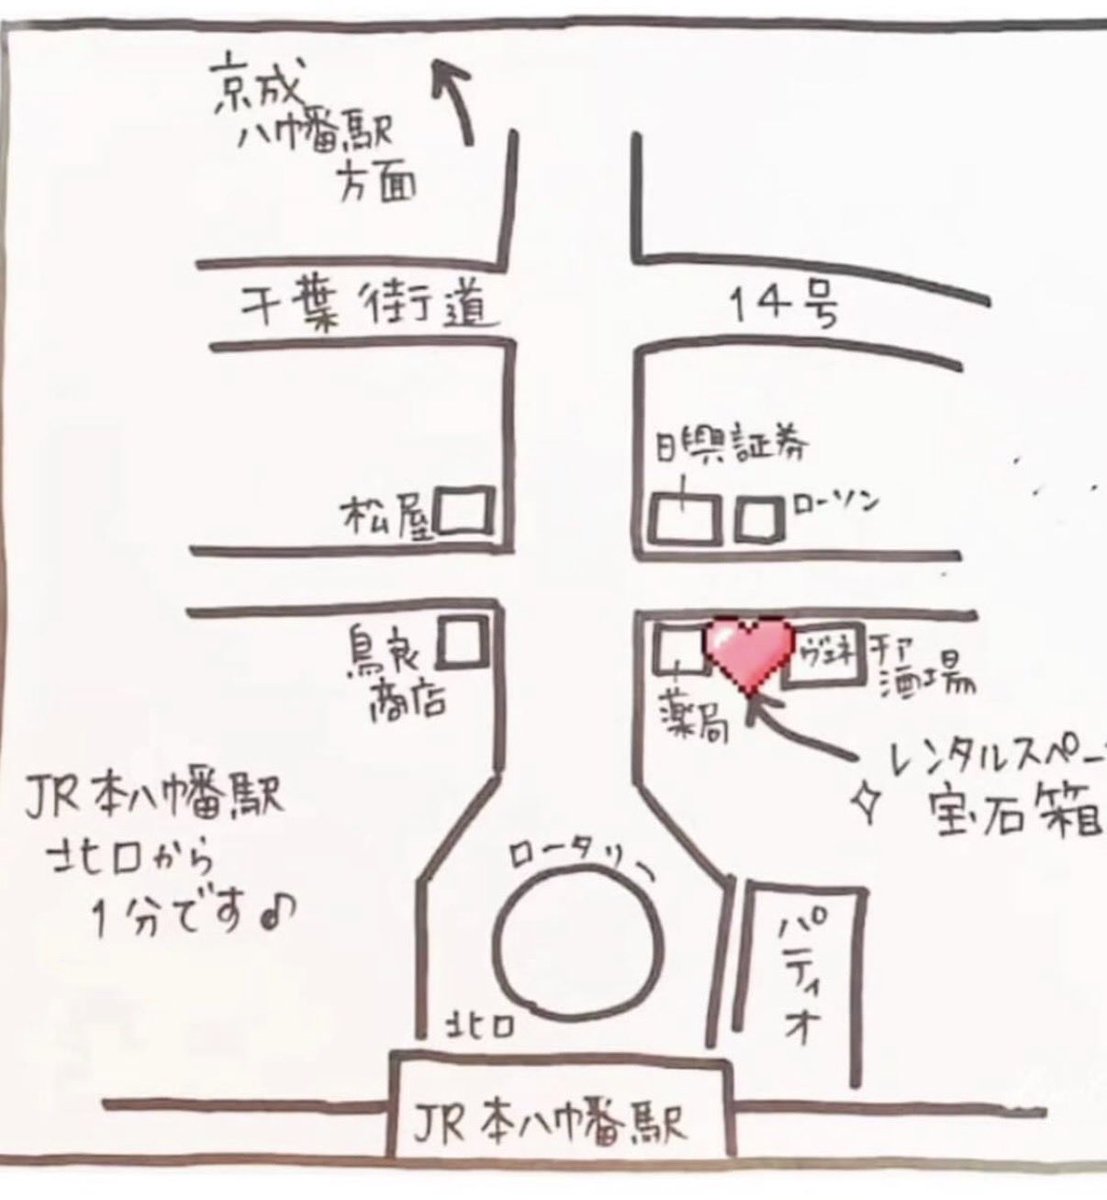 京成
八幡駅
方面
千葉街道
14号
日興証券
松屋
ローソン
鳥良
商店
薬局
ヴェネチア
酒場
レンタルスペー
宝石箱
JR本八幡駅
北口から
1分です♪
ロータリー
パティオ
北口
JR本八幡駅